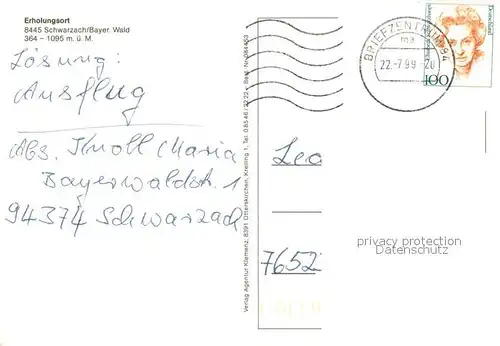 Erholungsort
8445 Schwarzach/Bayer. Wald
364 – 1095 m. ü. M.
Lösung:
Ausflug
Abs. Knoll Maria
Bayerwaldstr. 1
94374 Schwarzach
Verlag Agentur Klemenz, 8391 Otterskirchen, Kreiling 1, Tel. 0 85 46 / 22 22
BRIEFZENTRUM 94
ma
22.-7.99-20
Deutschland
100
Lea
7652
privacy protection
Datenschutz